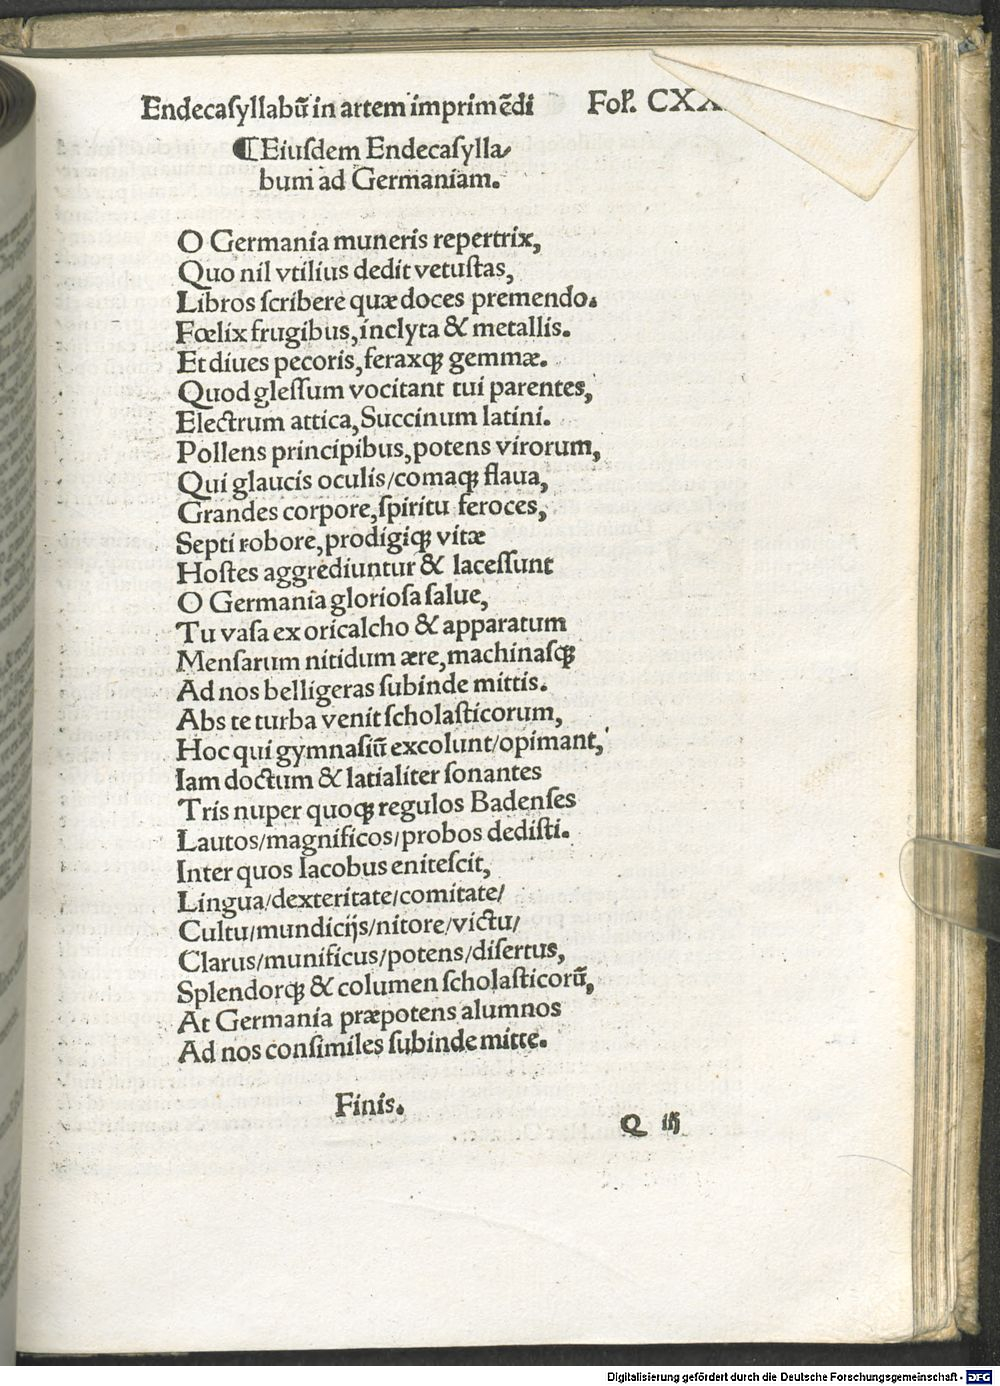 Endecaſyllabū in artem imprimēdi Fol. CXX
¶ Eiuſdem Endecaſylla/
bum ad Germaniam.
O Germania muneris repertrix,
Quo nil vtilius dedit vetuſtas,
Libros ſcribere quæ doces premendo.
Fœlix frugibus, inclyta & metallis.
Et diues pecoris, feraxqꝫ gemmæ.
Quod gleſſum vocitant tui parentes,
Electrum attica, Succinum latini.
Pollens principibus, potens virorum,
Qui glaucis oculis/comaqꝫ flaua,
Grandes corpore, ſpiritu feroces,
Septi robore, prodigiqꝫ vitæ
Hoſtes aggrediuntur & laceſſunt
O Germania glorioſa ſalue,
Tu vaſa ex oricalcho & apparatum
Menſarum nitidum ære, machinaſqꝫ
Ad nos belligeras ſubinde mittis.
Abs te turba venit ſcholaſticorum,
Hoc qui gymnaſiū excolunt/opimant,
Iam doctum & latialiter ſonantes
Tris nuper quoqꝫ regulos Badenſes
Lautos/magnificos/probos dediſti.
Inter quos Iacobus eniteſcit,
Lingua/dexteritate/comitate/
Cultu/mundicijs/nitore/victu/
Clarus/munificus/potens/diſertus,
Splendorqꝫ & columen ſcholaſticorū,
At Germania præpotens alumnos
Ad nos conſimiles ſubinde mitte.
Finis.
Q iij
Digitalisierung gefördert durch die Deutsche Forschungsgemeinschaft - DFG